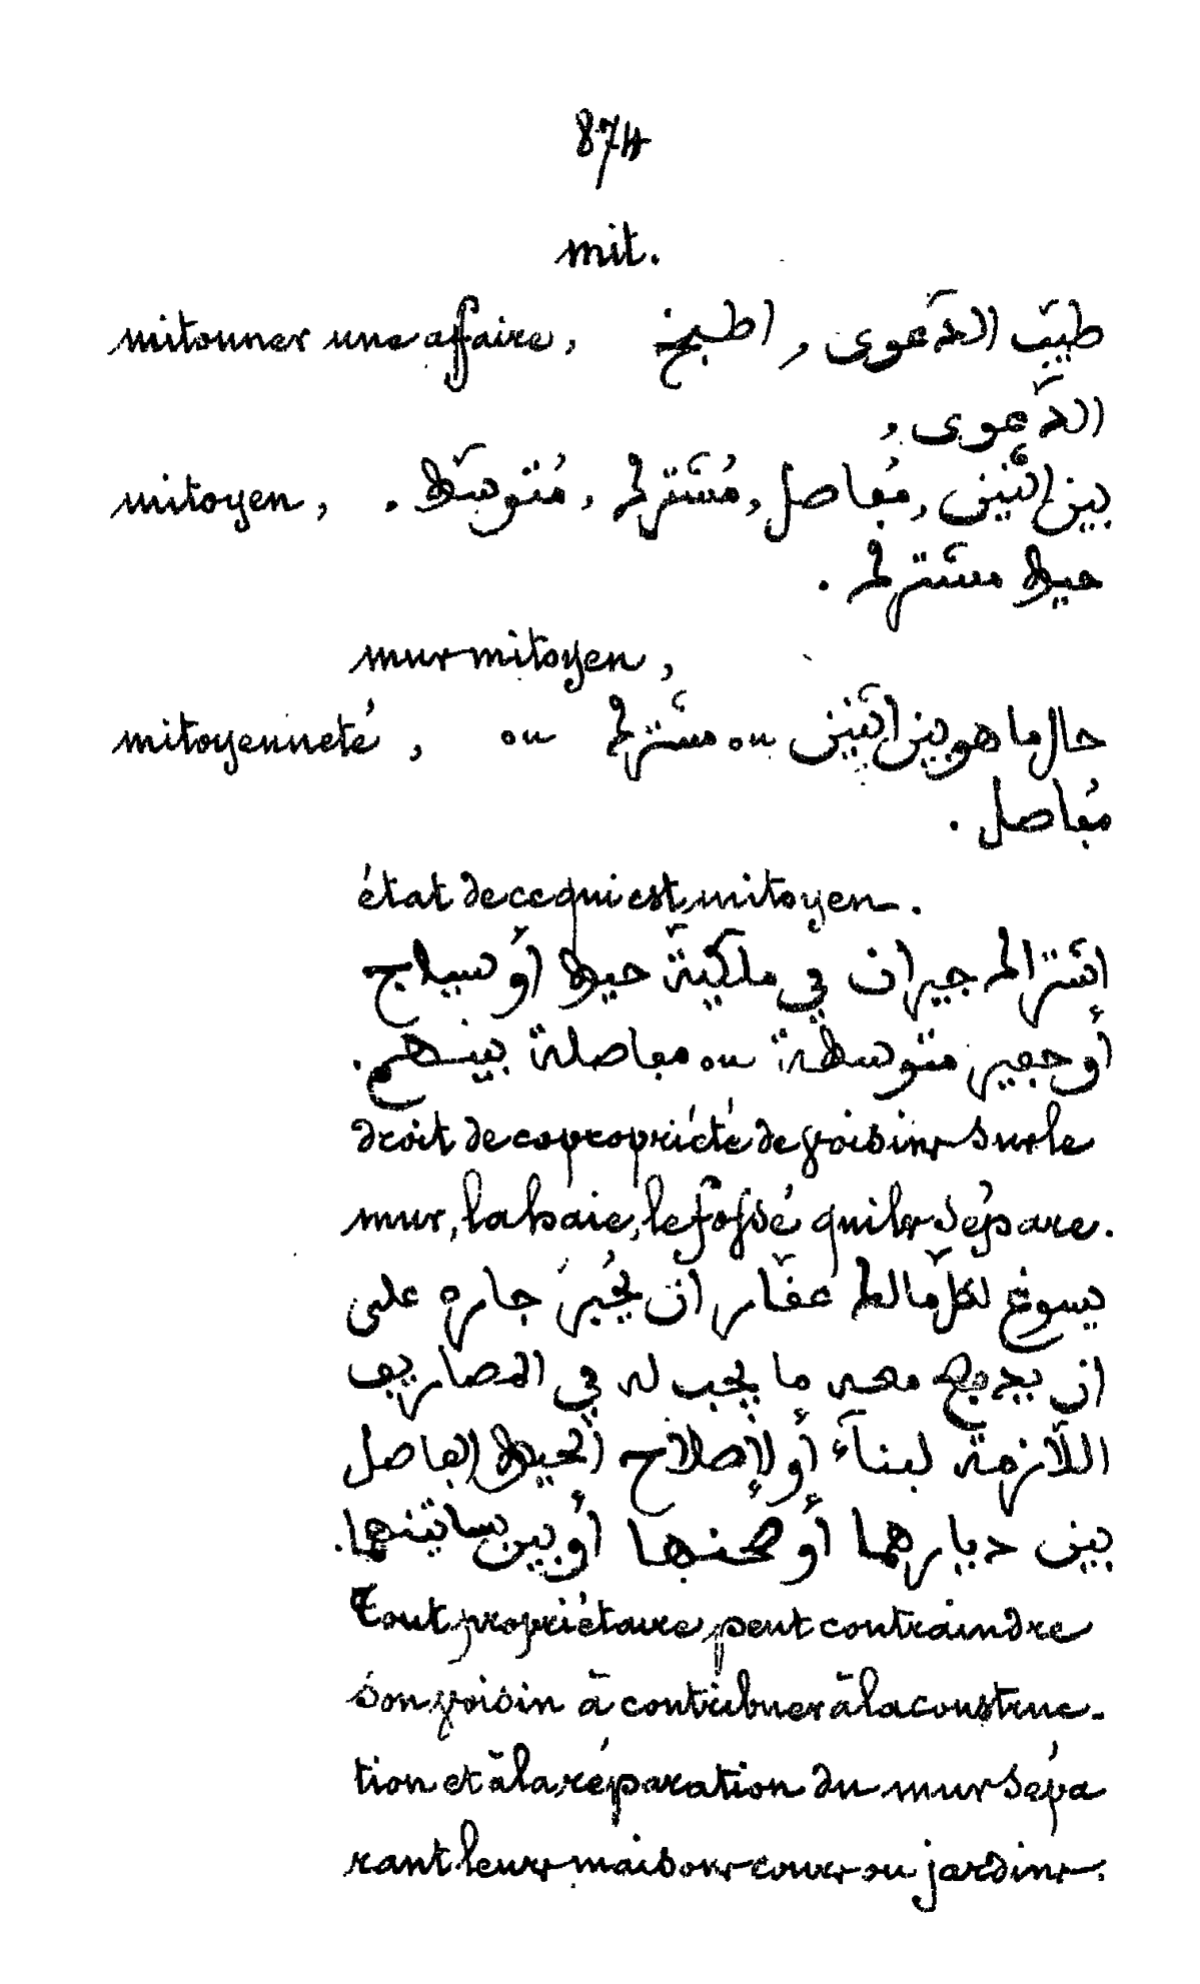 874
mit.
mitonner une affaire, طيّب الدّعوى, اطبخ
الدّعوى,
mitoyen, بين اثنين, مُفاصل, مُشترك, مُتوسّط.
حيط مشترك.
mur mitoyen,
mitoyenneté, حال ما هو بين اثنين ou مشترك ou
مُفاصل.
état de ce qui est mitoyen.
اشتراك جيران في ملكيّة حيط أو سياج
أو حفير متوسطة ou مفاصلة بينهم.
droit de copropriété de voisins sur le
mur, la haie, le fossé qui les sépare.
يسوغ لكلّ مالك عقّار ان يُجبرَ جاره على
ان يدفع معه ما يجب له في المصاريف
اللّازمة لبنآء أو لإصلاح الحيط الفاصل
بين ديارهما أو صحنها أو بين بساتينهما.
Tout propriétaire peut contraindre
son voisin à contribuer à la construc-
tion et à la réparation du mur sépa
rant leurs maisons cours ou jardins.